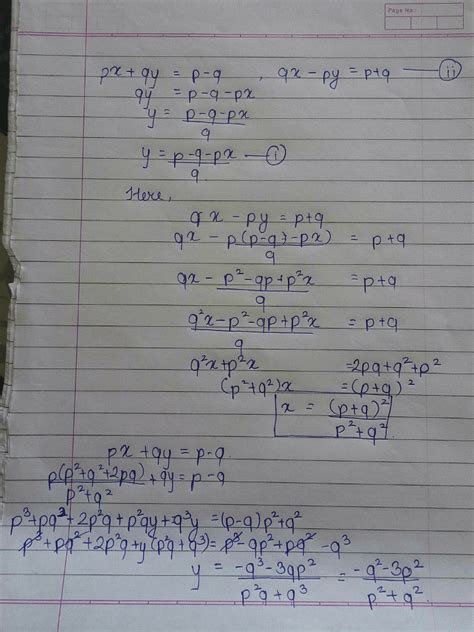 Page No.
px + qy = p-q , qx - py = p+q — (ii)
qy = p-q-px
y = p-q-px / q
y = p-q-px / q — (i)
Here,
qx - py = p+q
qx - p(p-q-px) / q = p+q
qx - p²-qp+p²x / q = p+q
q²x-p²-qp+p²x / q = p+q
q²x+p²x = 2pq+q²+p²
(p²+q²)x = (p+q)²
x = (p+q)² / p²+q²
px + qy = p-q
p(p²+q²+2pq) / p²+q² + qy = p-q
p³+pq²+2p²q+p²qy+q³y = (p-q)p²+q²
p³+pq²+2p²q+y(p²q+q³) = p³-qp²+pq²-q³
y = -q³-3qp² / p²q+q³ = -q²-3p² / p²+q²